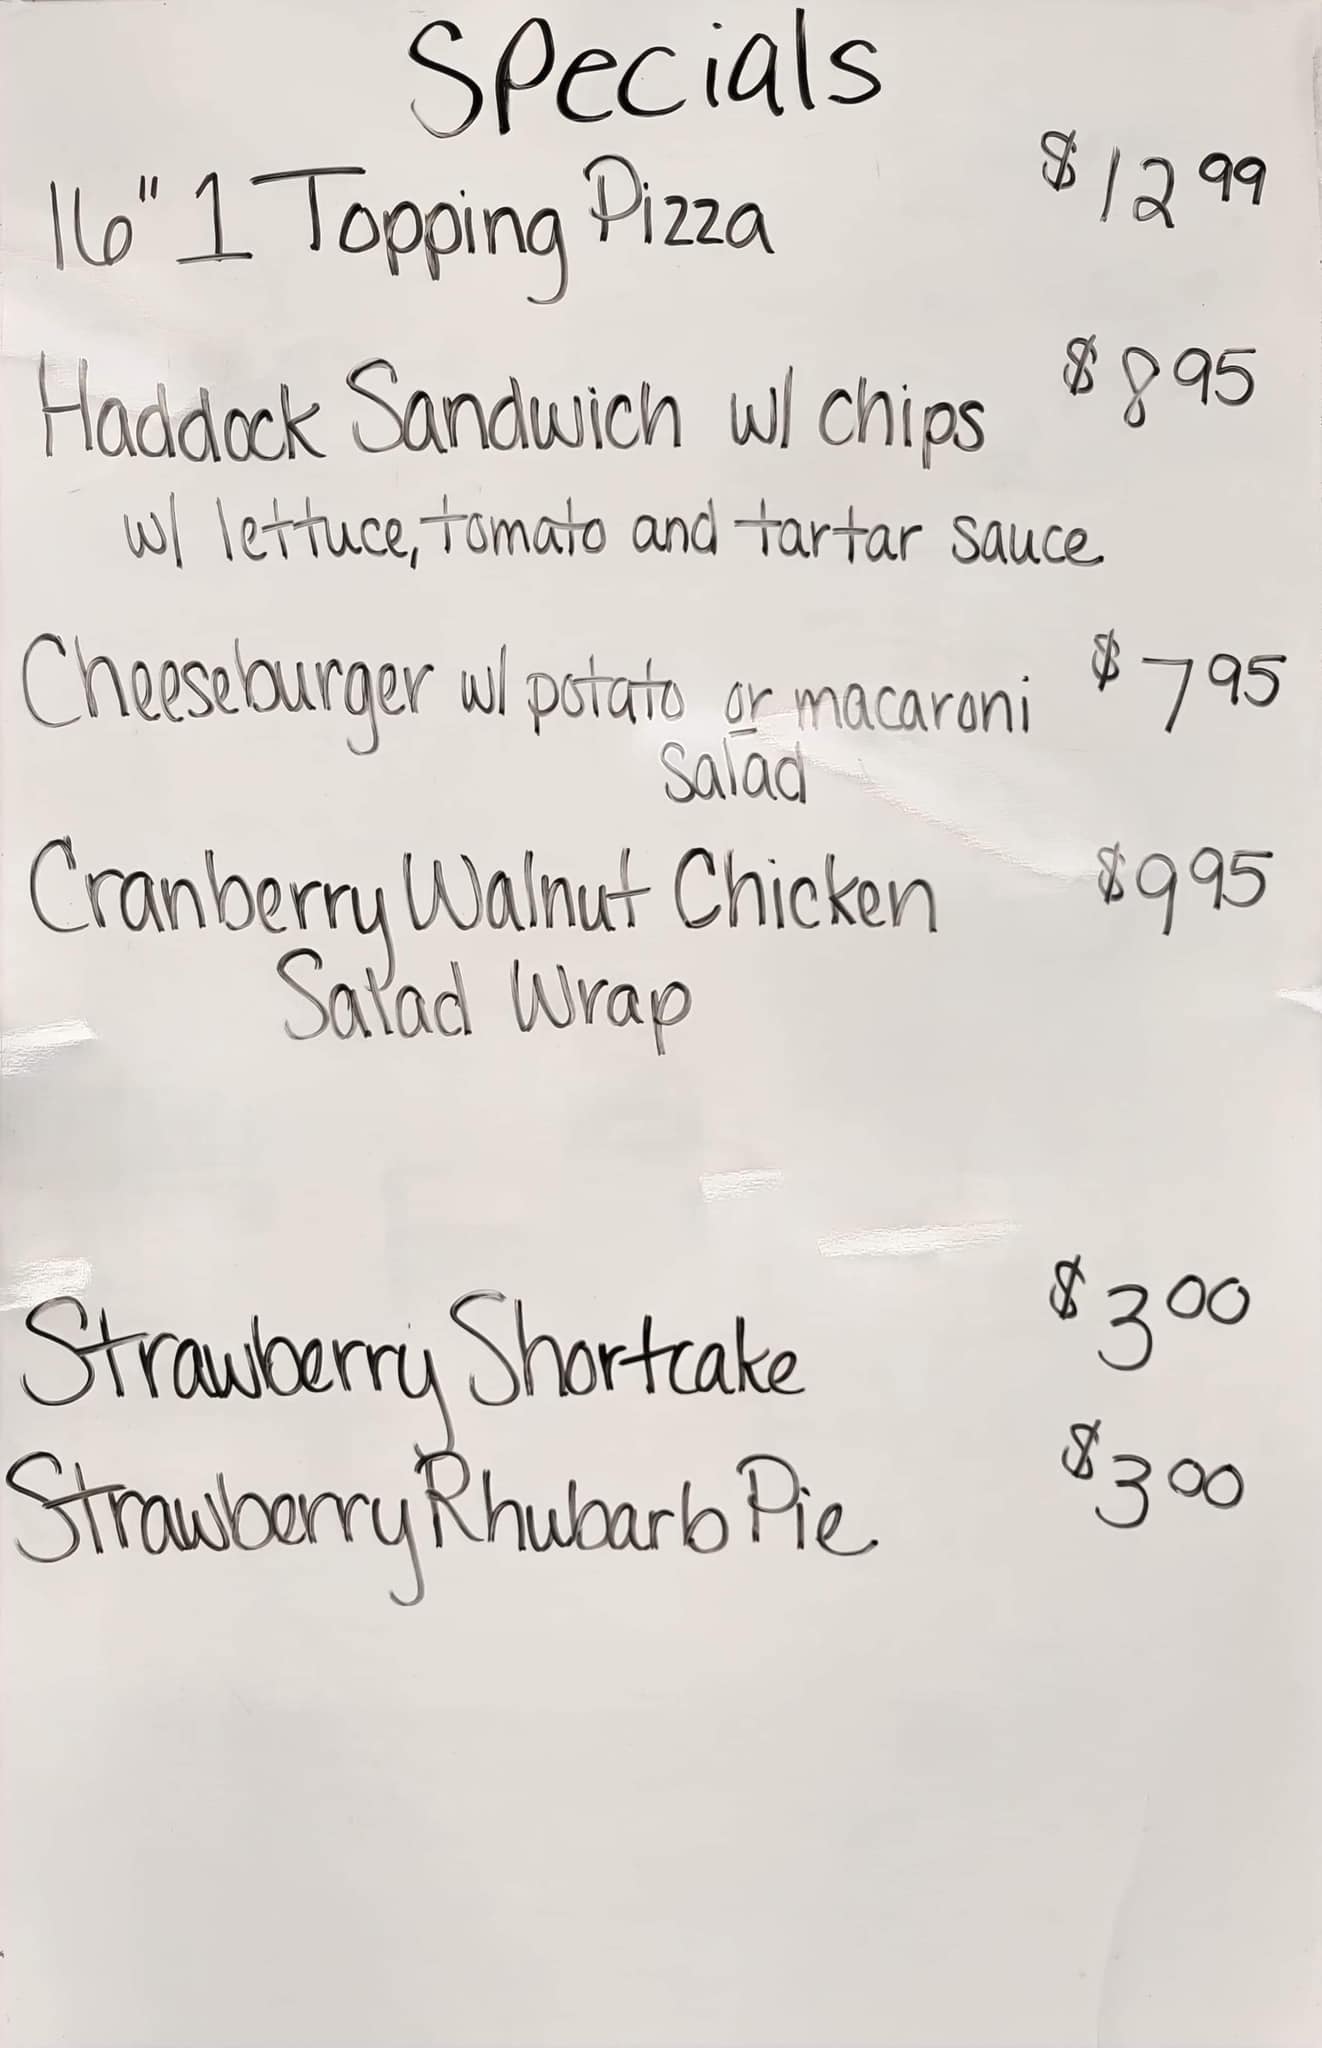 Specials
16" 1 Topping Pizza $12.99
Haddock Sandwich w/ chips $8.95
w/ lettuce, tomato and tartar sauce
Cheeseburger w/ potato or macaroni $7.95
salad
Cranberry Walnut Chicken $9.95
Salad Wrap
Strawberry Shortcake $3.00
Strawberry Rhubarb Pie $3.00